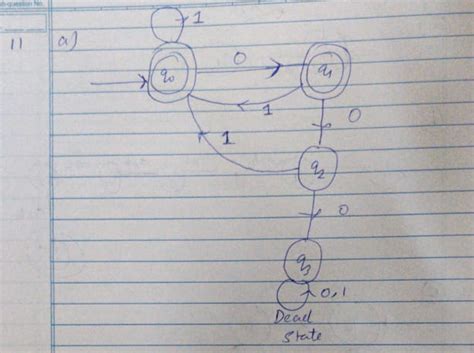 sub-question No.
11 a)
1
q0 0 q1
1
0
1
q2
0
q3
0,1
Dead
state